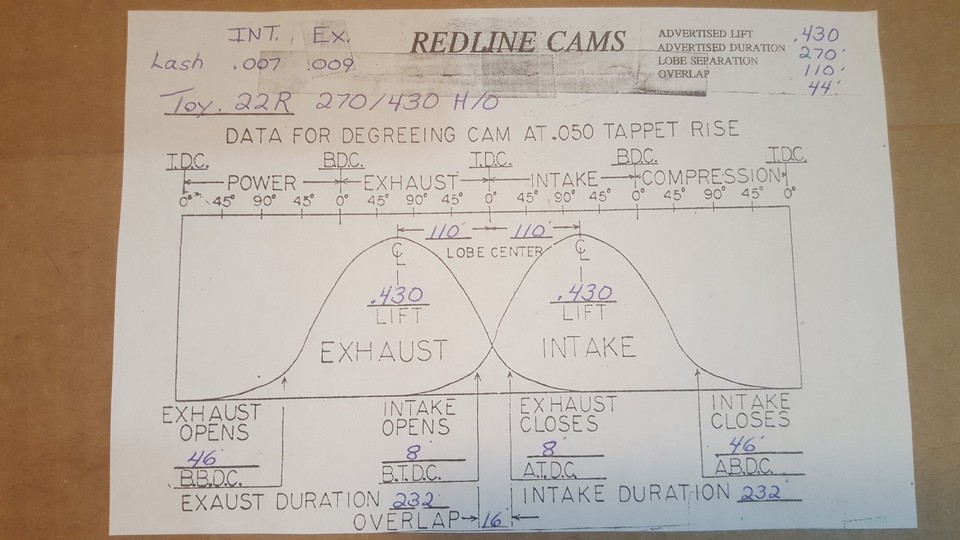 INT. Ex.
Lash .007 .009
REDLINE CAMS
ADVERTISED LIFT .430
ADVERTISED DURATION 270°
LOBE SEPARATION 110°
OVERLAP 44°
Toy. 22R 270/430 H/O
DATA FOR DEGREEING CAM AT .050 TAPPET RISE
T.D.C. B.D.C. T.D.C. B.D.C. T.D.C.
POWER EXHAUST INTAKE COMPRESSION
0° 45° 90° 45° 0° 45° 90° 45° 0° 45° 90° 45° 0° 45° 90° 45° 0°
110° 110°
℄ LOBE CENTER ℄
.430 .430
LIFT LIFT
EXHAUST INTAKE
EXHAUST OPENS
46°
B.B.D.C.
INTAKE OPENS
8°
B.T.D.C.
EXHAUST CLOSES
8°
A.T.D.C.
INTAKE CLOSES
46°
A.B.D.C.
EXAUST DURATION 232° INTAKE DURATION 232°
OVERLAP 16°